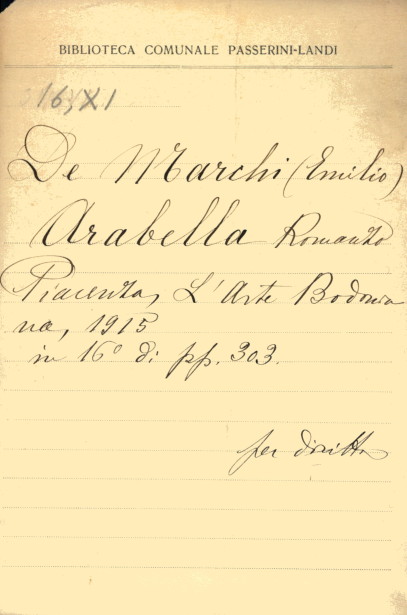 BIBLIOTECA COMUNALE PASSERINI-LANDI
16, XI
De Marchi (Emilio)
Arabella Romanzo
Piacenza, L'Arte Bodonia
na, 1915
in 16° di pp. 303.
per diritto